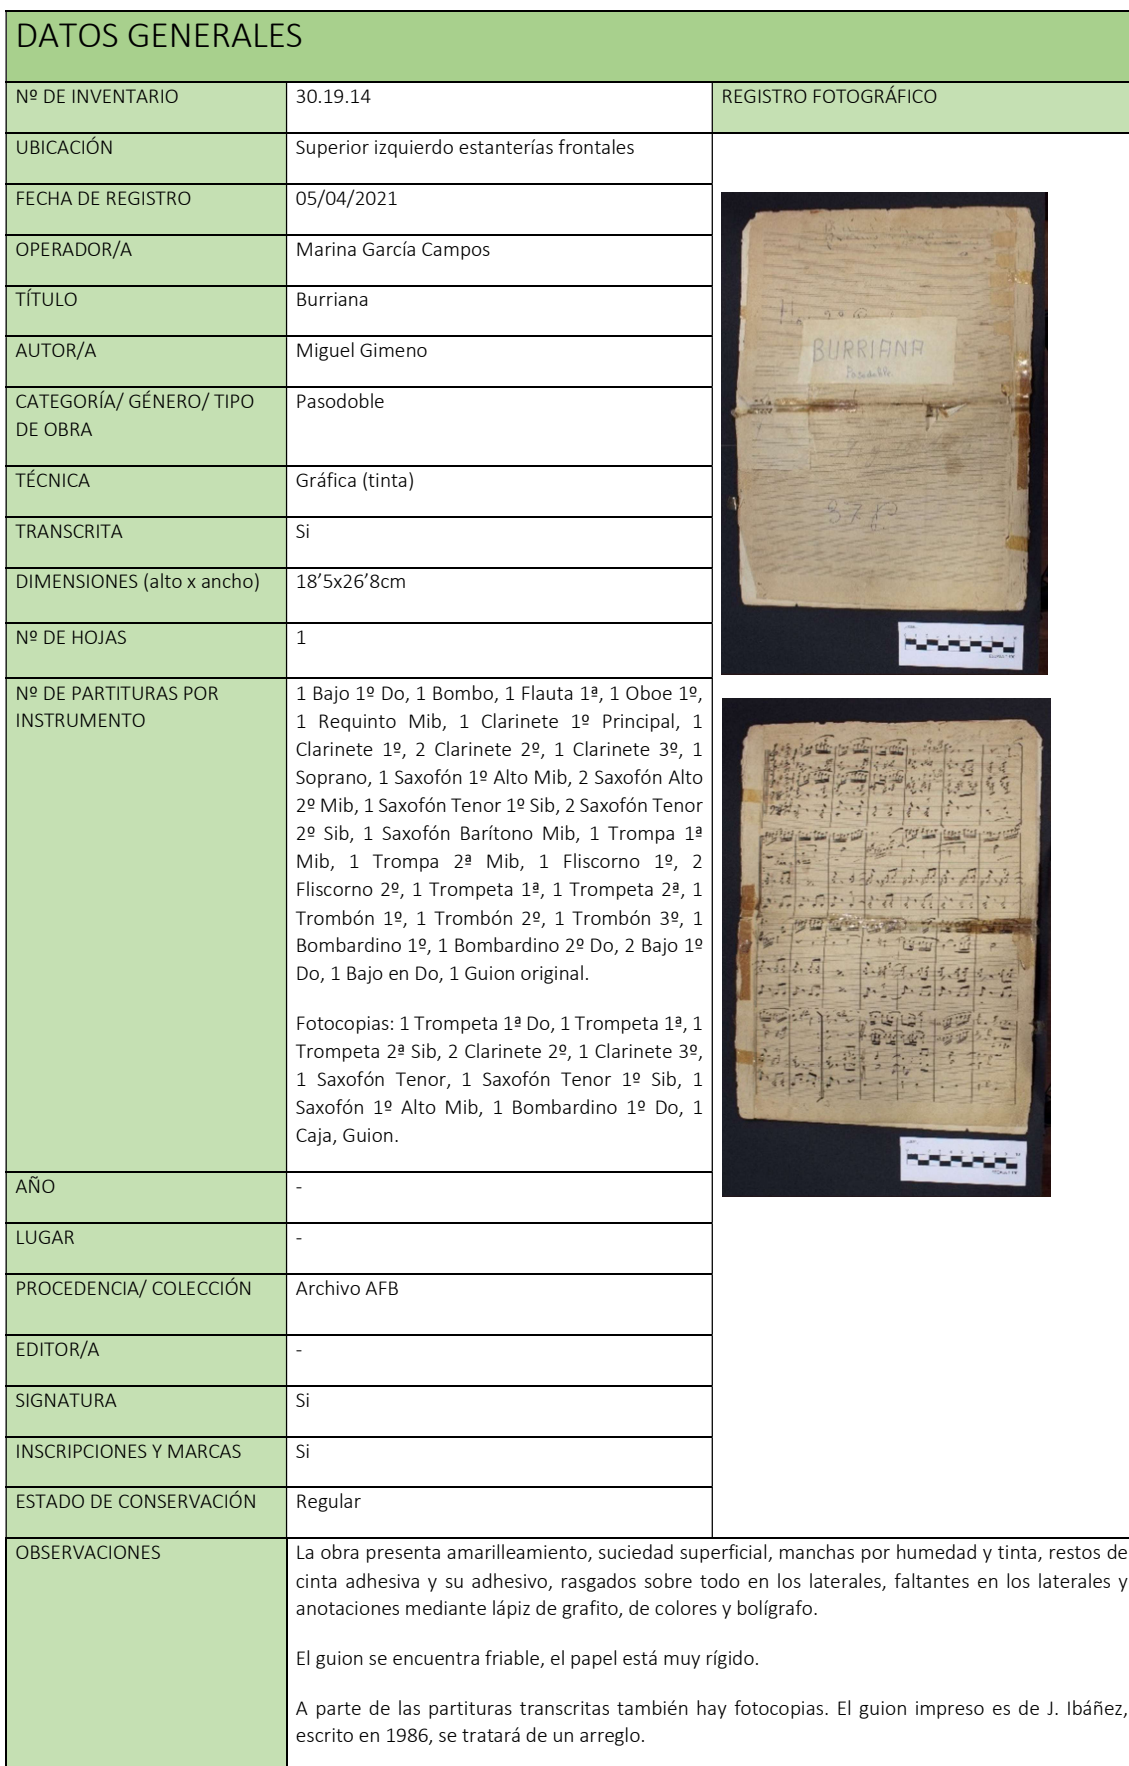 DATOS GENERALES
Nº DE INVENTARIO
30.19.14
REGISTRO FOTOGRÁFICO
UBICACIÓN
Superior izquierdo estanterías frontales
FECHA DE REGISTRO
05/04/2021
OPERADOR/A
Marina García Campos
TÍTULO
Burriana
AUTOR/A
Miguel Gimeno
CATEGORÍA/ GÉNERO/ TIPO
DE OBRA
Pasodoble
TÉCNICA
Gráfica (tinta)
TRANSCRITA
Si
DIMENSIONES (alto x ancho)
18’5x26’8cm
Nº DE HOJAS
1
Nº DE PARTITURAS POR
INSTRUMENTO
1 Bajo 1º Do, 1 Bombo, 1 Flauta 1ª, 1 Oboe 1º,
1 Requinto Mib, 1 Clarinete 1º Principal, 1
Clarinete 1º, 2 Clarinete 2º, 1 Clarinete 3º, 1
Soprano, 1 Saxofón 1º Alto Mib, 2 Saxofón Alto
2º Mib, 1 Saxofón Tenor 1º Sib, 2 Saxofón Tenor
2º Sib, 1 Saxofón Barítono Mib, 1 Trompa 1ª
Mib, 1 Trompa 2ª Mib, 1 Fliscorno 1º, 2
Fliscorno 2º, 1 Trompeta 1ª, 1 Trompeta 2ª, 1
Trombón 1º, 1 Trombón 2º, 1 Trombón 3º, 1
Bombardino 1º, 1 Bombardino 2º Do, 2 Bajo 1º
Do, 1 Bajo en Do, 1 Guion original.
Fotocopias: 1 Trompeta 1ª Do, 1 Trompeta 1ª, 1
Trompeta 2ª Sib, 2 Clarinete 2º, 1 Clarinete 3º,
1 Saxofón Tenor, 1 Saxofón Tenor 1º Sib, 1
Saxofón 1º Alto Mib, 1 Bombardino 1º Do, 1
Caja, Guion.
BURRIANA
Pasodoble
AÑO
-
LUGAR
-
PROCEDENCIA/ COLECCIÓN
Archivo AFB
EDITOR/A
-
SIGNATURA
Si
INSCRIPCIONES Y MARCAS
Si
ESTADO DE CONSERVACIÓN
Regular
OBSERVACIONES
La obra presenta amarilleamiento, suciedad superficial, manchas por humedad y tinta, restos de
cinta adhesiva y su adhesivo, rasgados sobre todo en los laterales, faltantes en los laterales y
anotaciones mediante lápiz de grafito, de colores y bolígrafo.
El guion se encuentra friable, el papel está muy rígido.
A parte de las partituras transcritas también hay fotocopias. El guion impreso es de J. Ibáñez,
escrito en 1986, se tratará de un arreglo.